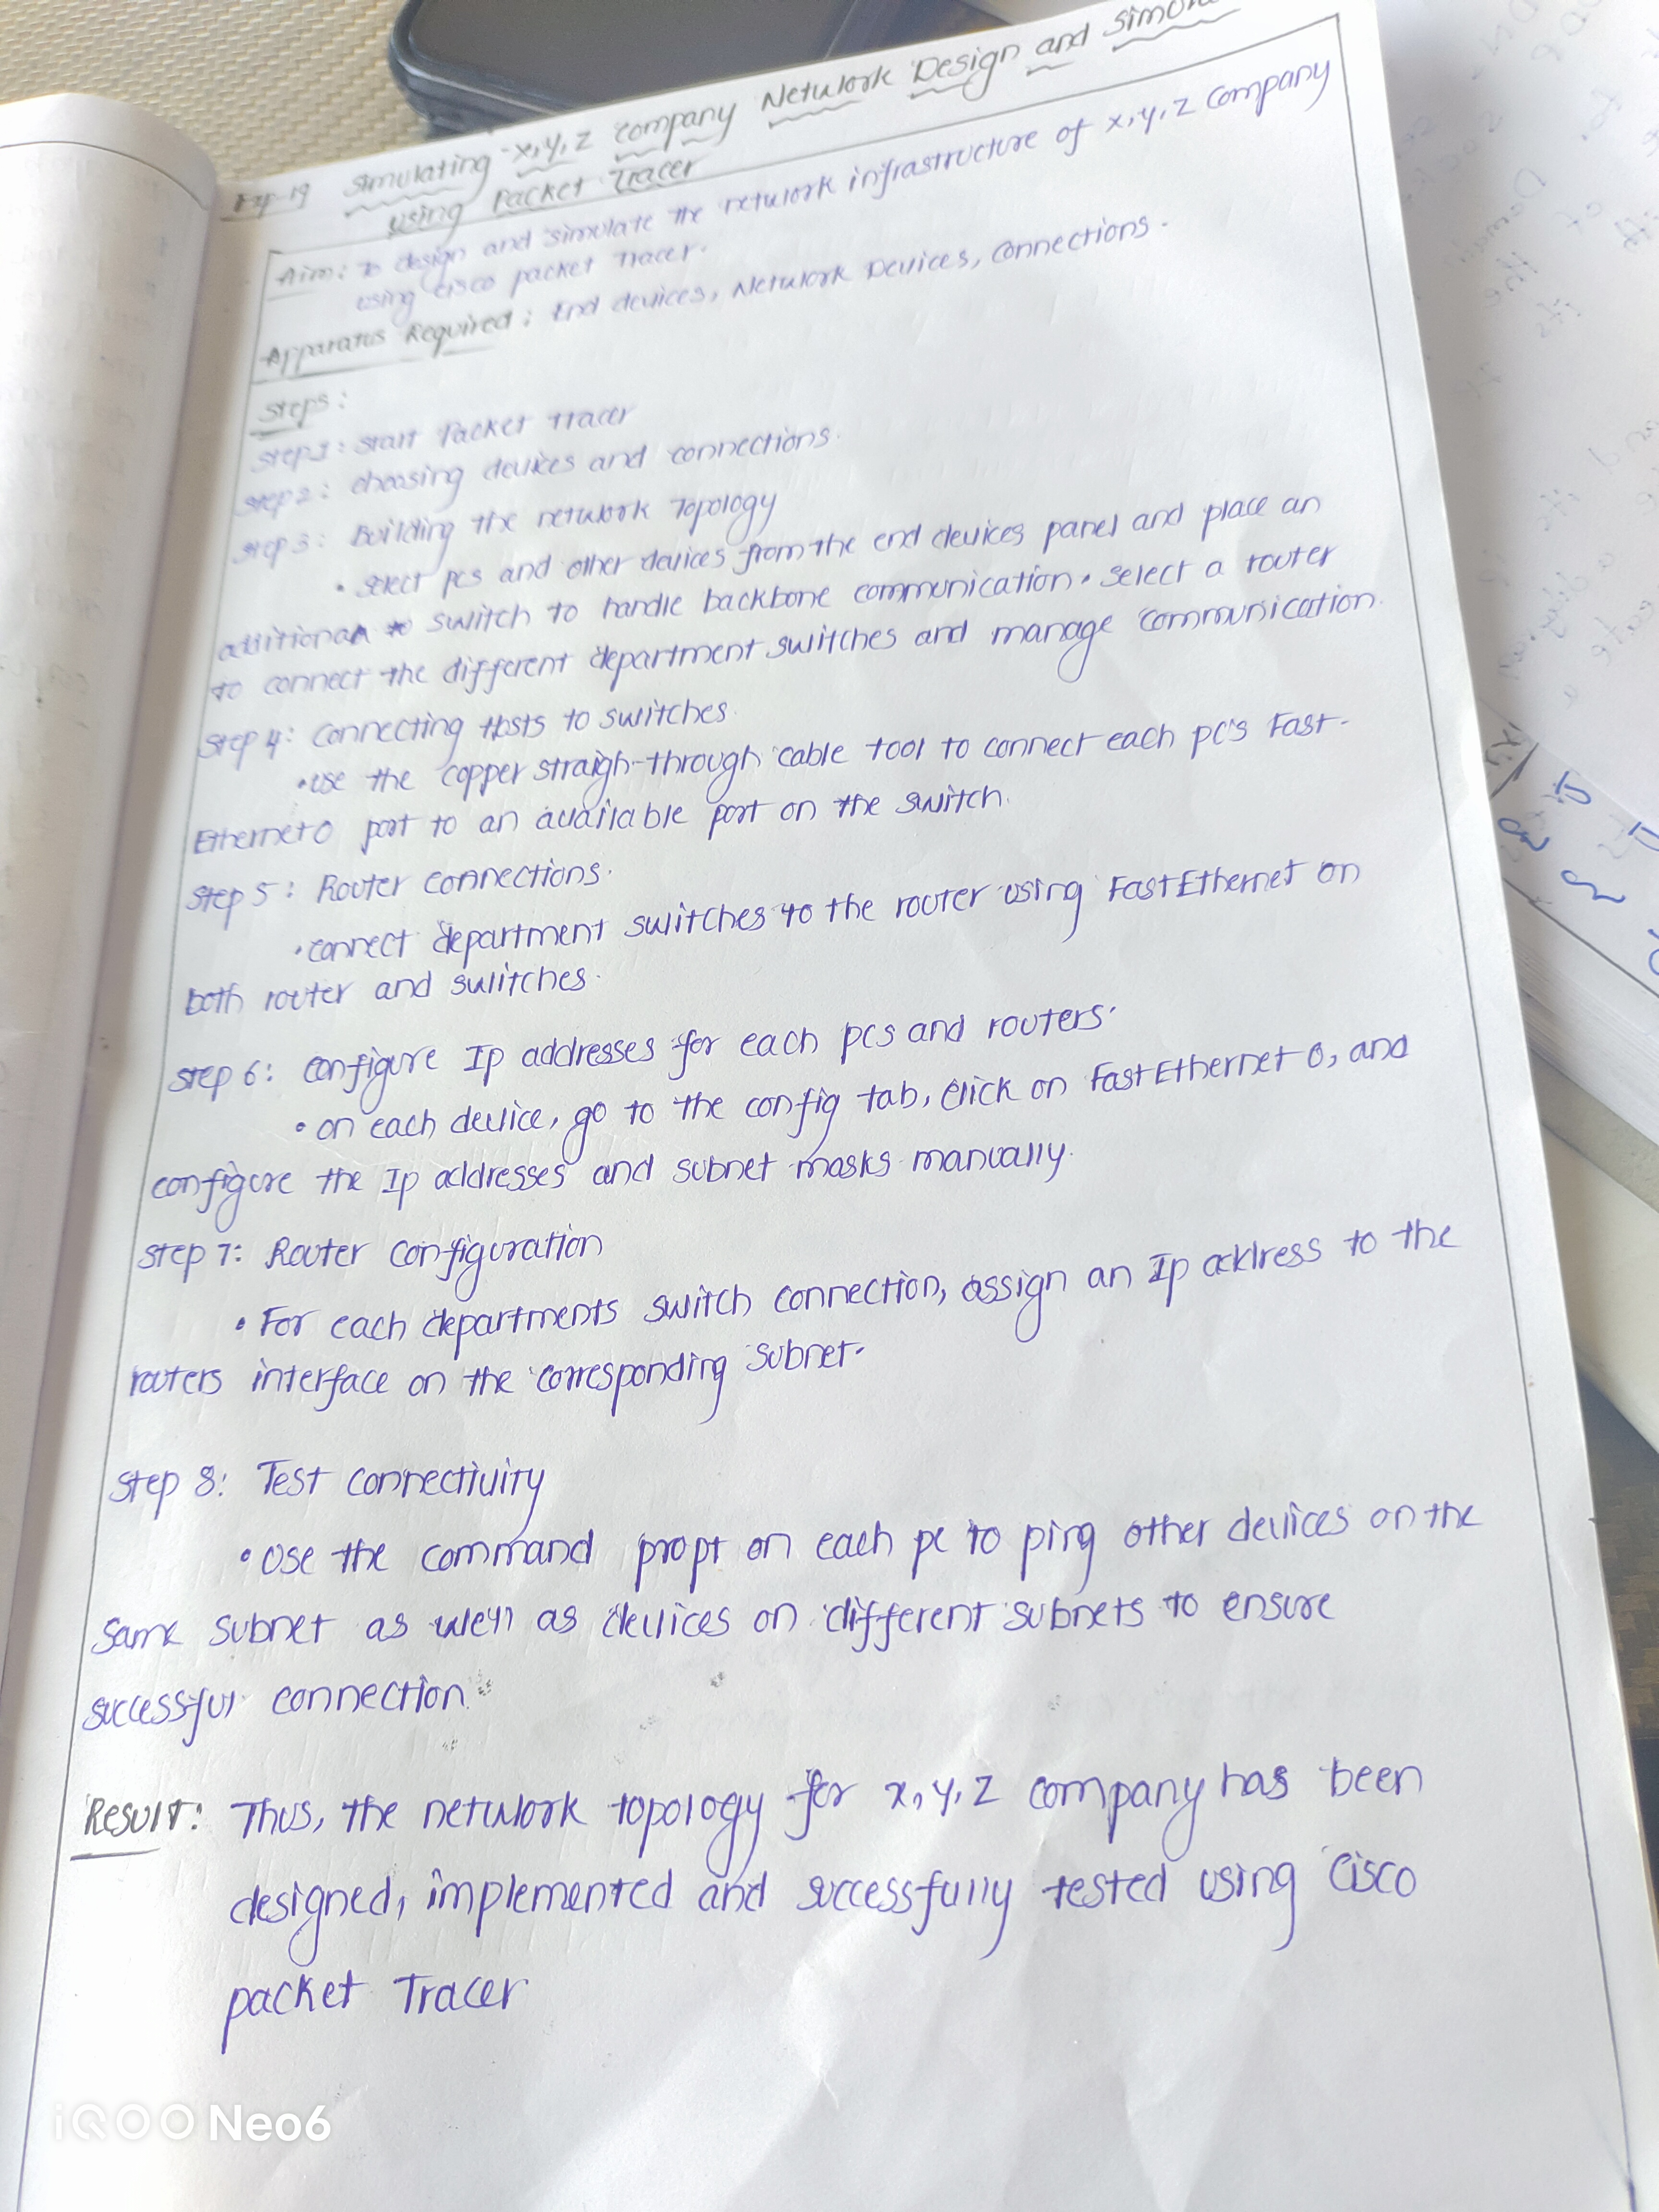 Exp-19 Simulating X,Y,Z Company Network Design and
using Packet Tracer
Aim: To design and simulate the network infrastructure of X,Y,Z Company
using cisco packet Tracer.
Apparatus Required: End devices, Network Devices, Connections.
Steps:
Step 1: Start Packet Tracer
Step 2: choosing devices and connections.
Step 3: Building the network Topology
• Select pcs and other devices from the end devices panel and place an
additional switch to handle backbone communication. Select a router
to connect the different department switches and manage communication.
Step 4: Connecting Hosts to switches
• Use the copper straigh-through cable tool to connect each pc's Fast-
Ethernet0 port to an available port on the switch.
Step 5: Router connections.
• connect department switches to the router using FastEthernet on
both router and switches.
Step 6: Configure Ip addresses for each pcs and routers.
• on each device, go to the config tab, click on FastEthernet 0, and
configure the Ip addresses and subnet masks manually.
Step 7: Router Configuration
• For each departments switch connection, assign an Ip address to the
routers interface on the corresponding subnet.
Step 8: Test Connectivity
• Use the command propt on each pc to ping other devices on the
same subnet as well as devices on different subnets to ensure
successful connection.
Result: Thus, the network topology for x,y,z company has been
designed, implemented and successfully tested using Cisco
packet Tracer
iQOO Neo6